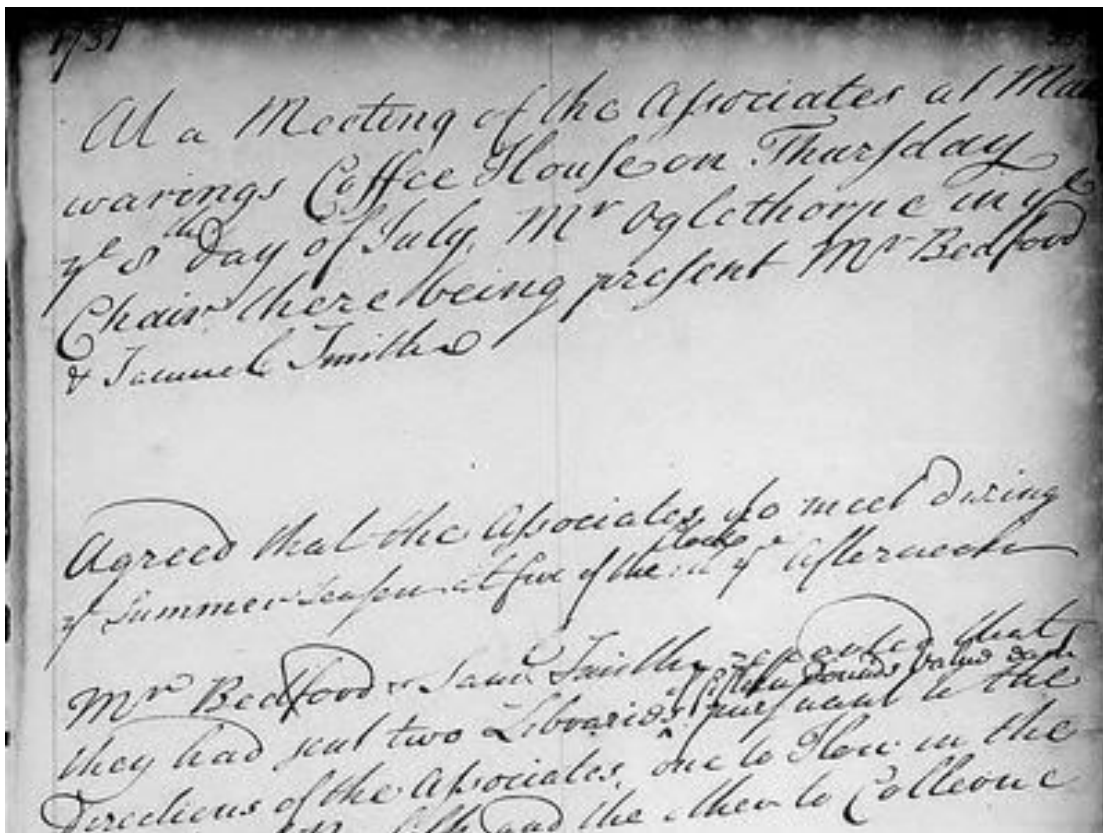 1731
At a Meeting of the Associates at Man
warings Coffee House on Thursday
ye 8th Day of July, Mr Oglethorpe in ye
Chair there being present Mr Bedford
& Samuel Smith
Agreed that the Associates do meet during
ye Summer Season at five of the Clock in ye afternoon
Mr Bedford & Saml Smith reported that
they had sent two Libraries of fifteen pounds value each pursuant to the
Directions of the Associates, one to Flow in the
and the other to Colleone